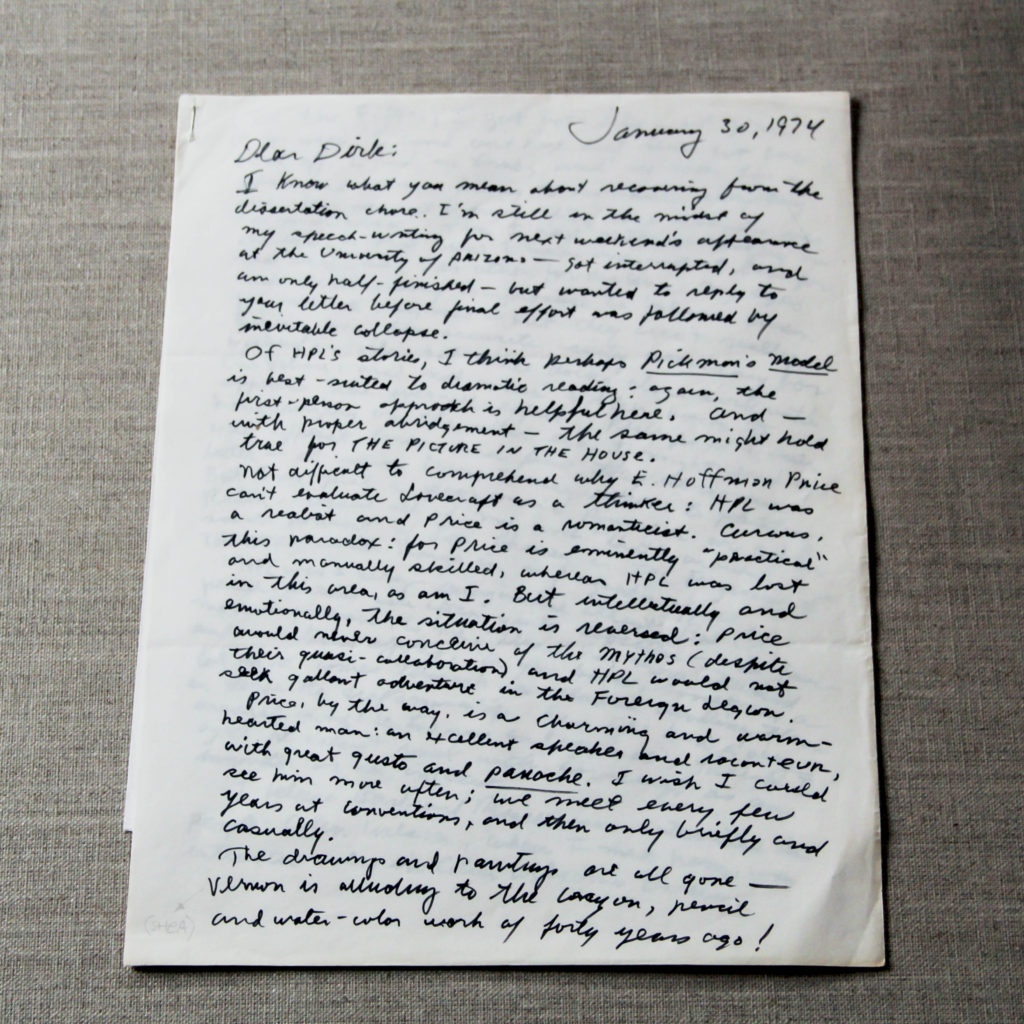 January 30, 1974
Dear Dirk:
I know what you mean about recovering from the
dissertation chore. I'm still in the midst of
my speech-writing for next weekend's appearance
at the University of Arizona — got interrupted, and
am only half-finished — but wanted to reply to
your letter before final effort was followed by
inevitable collapse.
Of HPL's stories, I think perhaps Pickman's Model
is best-suited to dramatic reading: again, the
first-person approach is helpful here. And —
with proper abridgement — the same might hold
true for THE PICTURE IN THE HOUSE.
Not difficult to comprehend why E. Hoffman Price
can't evaluate Lovecraft as a thinker: HPL was
a realist and Price is a romanticist. Curious,
this paradox: for Price is eminently "practical"
and manually skilled, whereas HPL was lost
in this area, as am I. But intellectually and
emotionally, the situation is reversed: Price
would never conceive of the Mythos (despite
their quasi-collaboration) and HPL would not
seek gallant adventure in the Foreign Legion.
Price, by the way, is a charming and warm-
hearted man: an excellent speaker and raconteur,
with great gusto and panache. I wish I could
see him more often; we meet every few
years at conventions, and then only briefly and
casually.
The drawings and paintings are all gone —
Vernon is alluding to the crayon, pencil
and water-color work of forty years ago!
(SHEA)